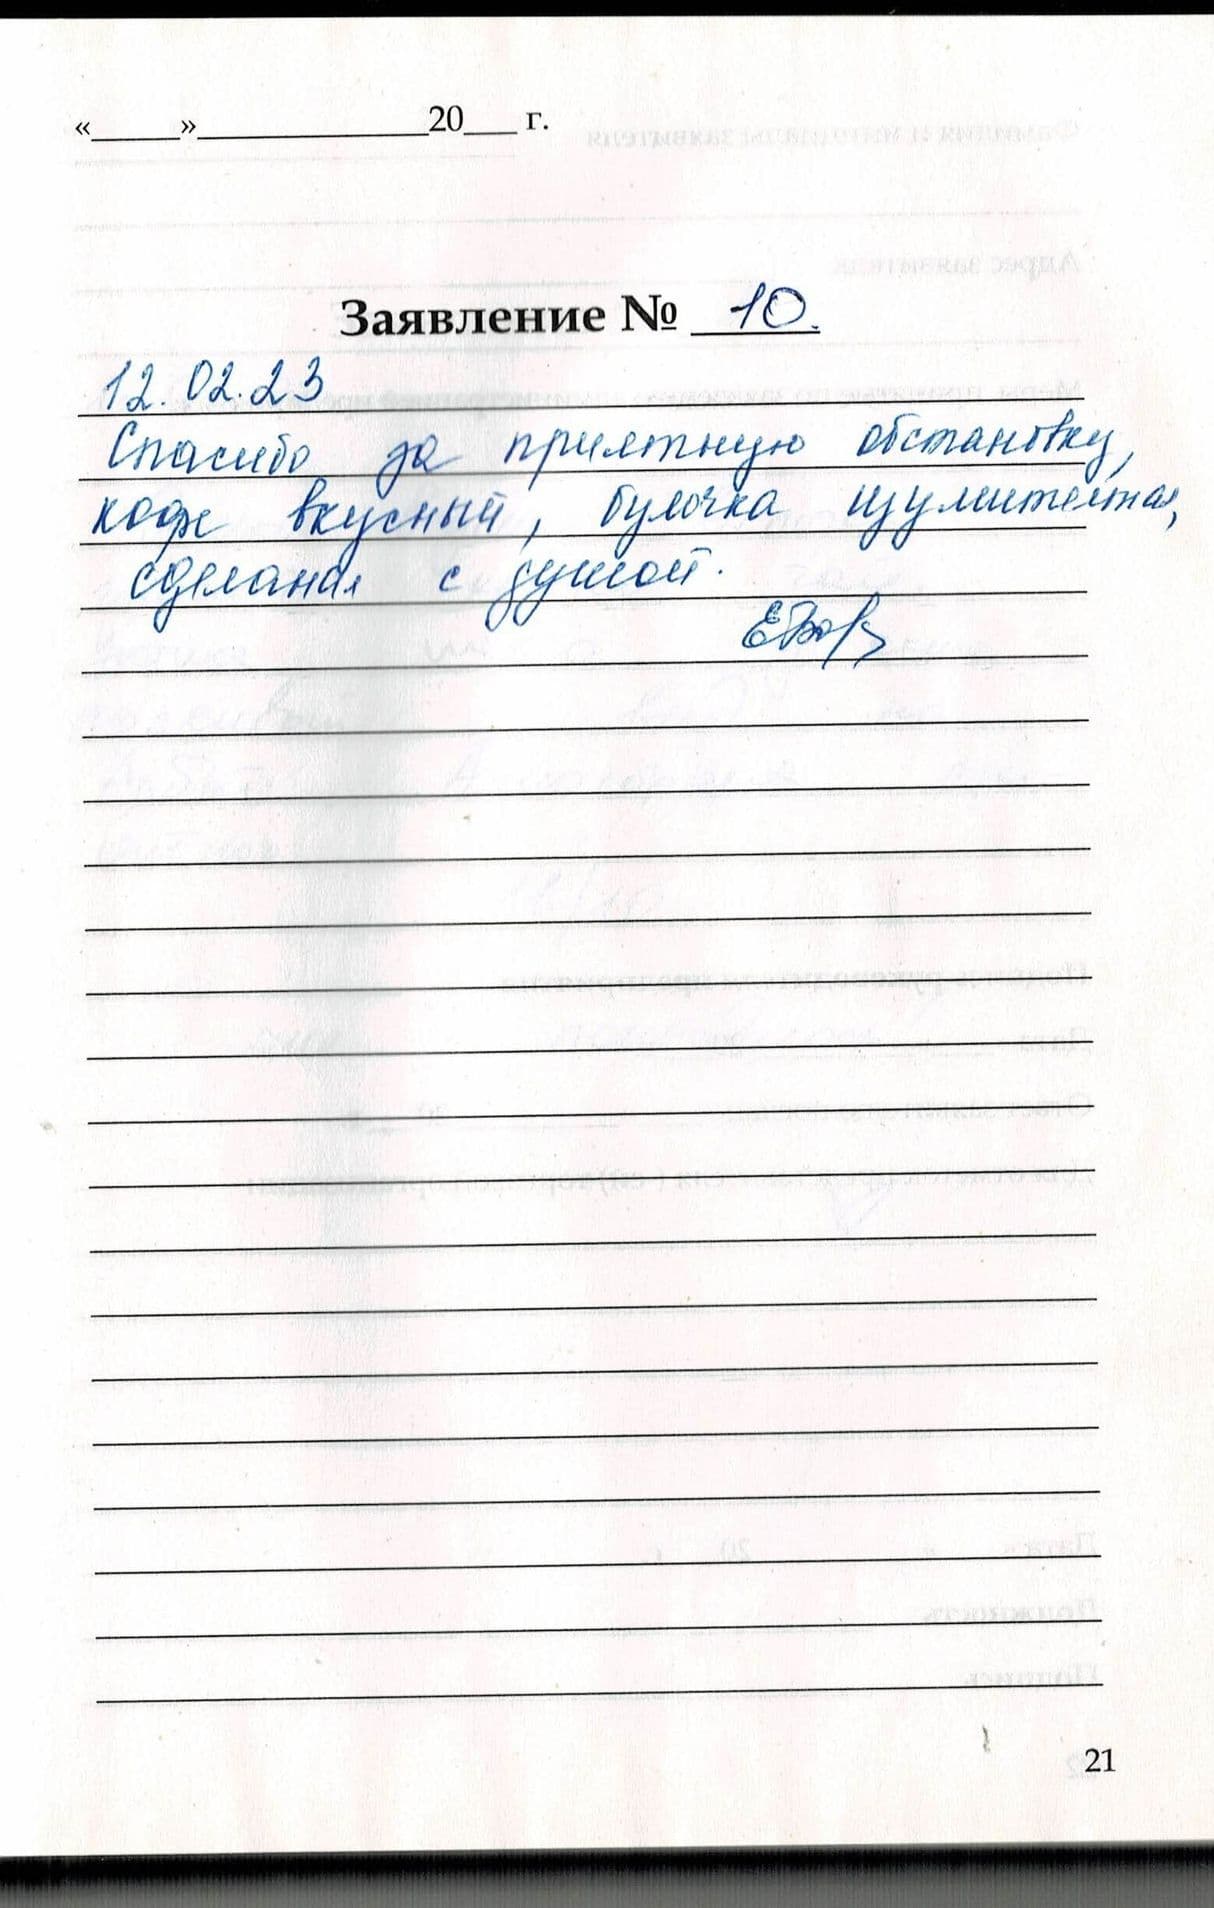 «_____»_____________20___ г.
Заявление № 10.
12.02.23
Спасибо за приятную обстановку,
кофе вкусный, булочка изумительная,
сделаная с душой.
21